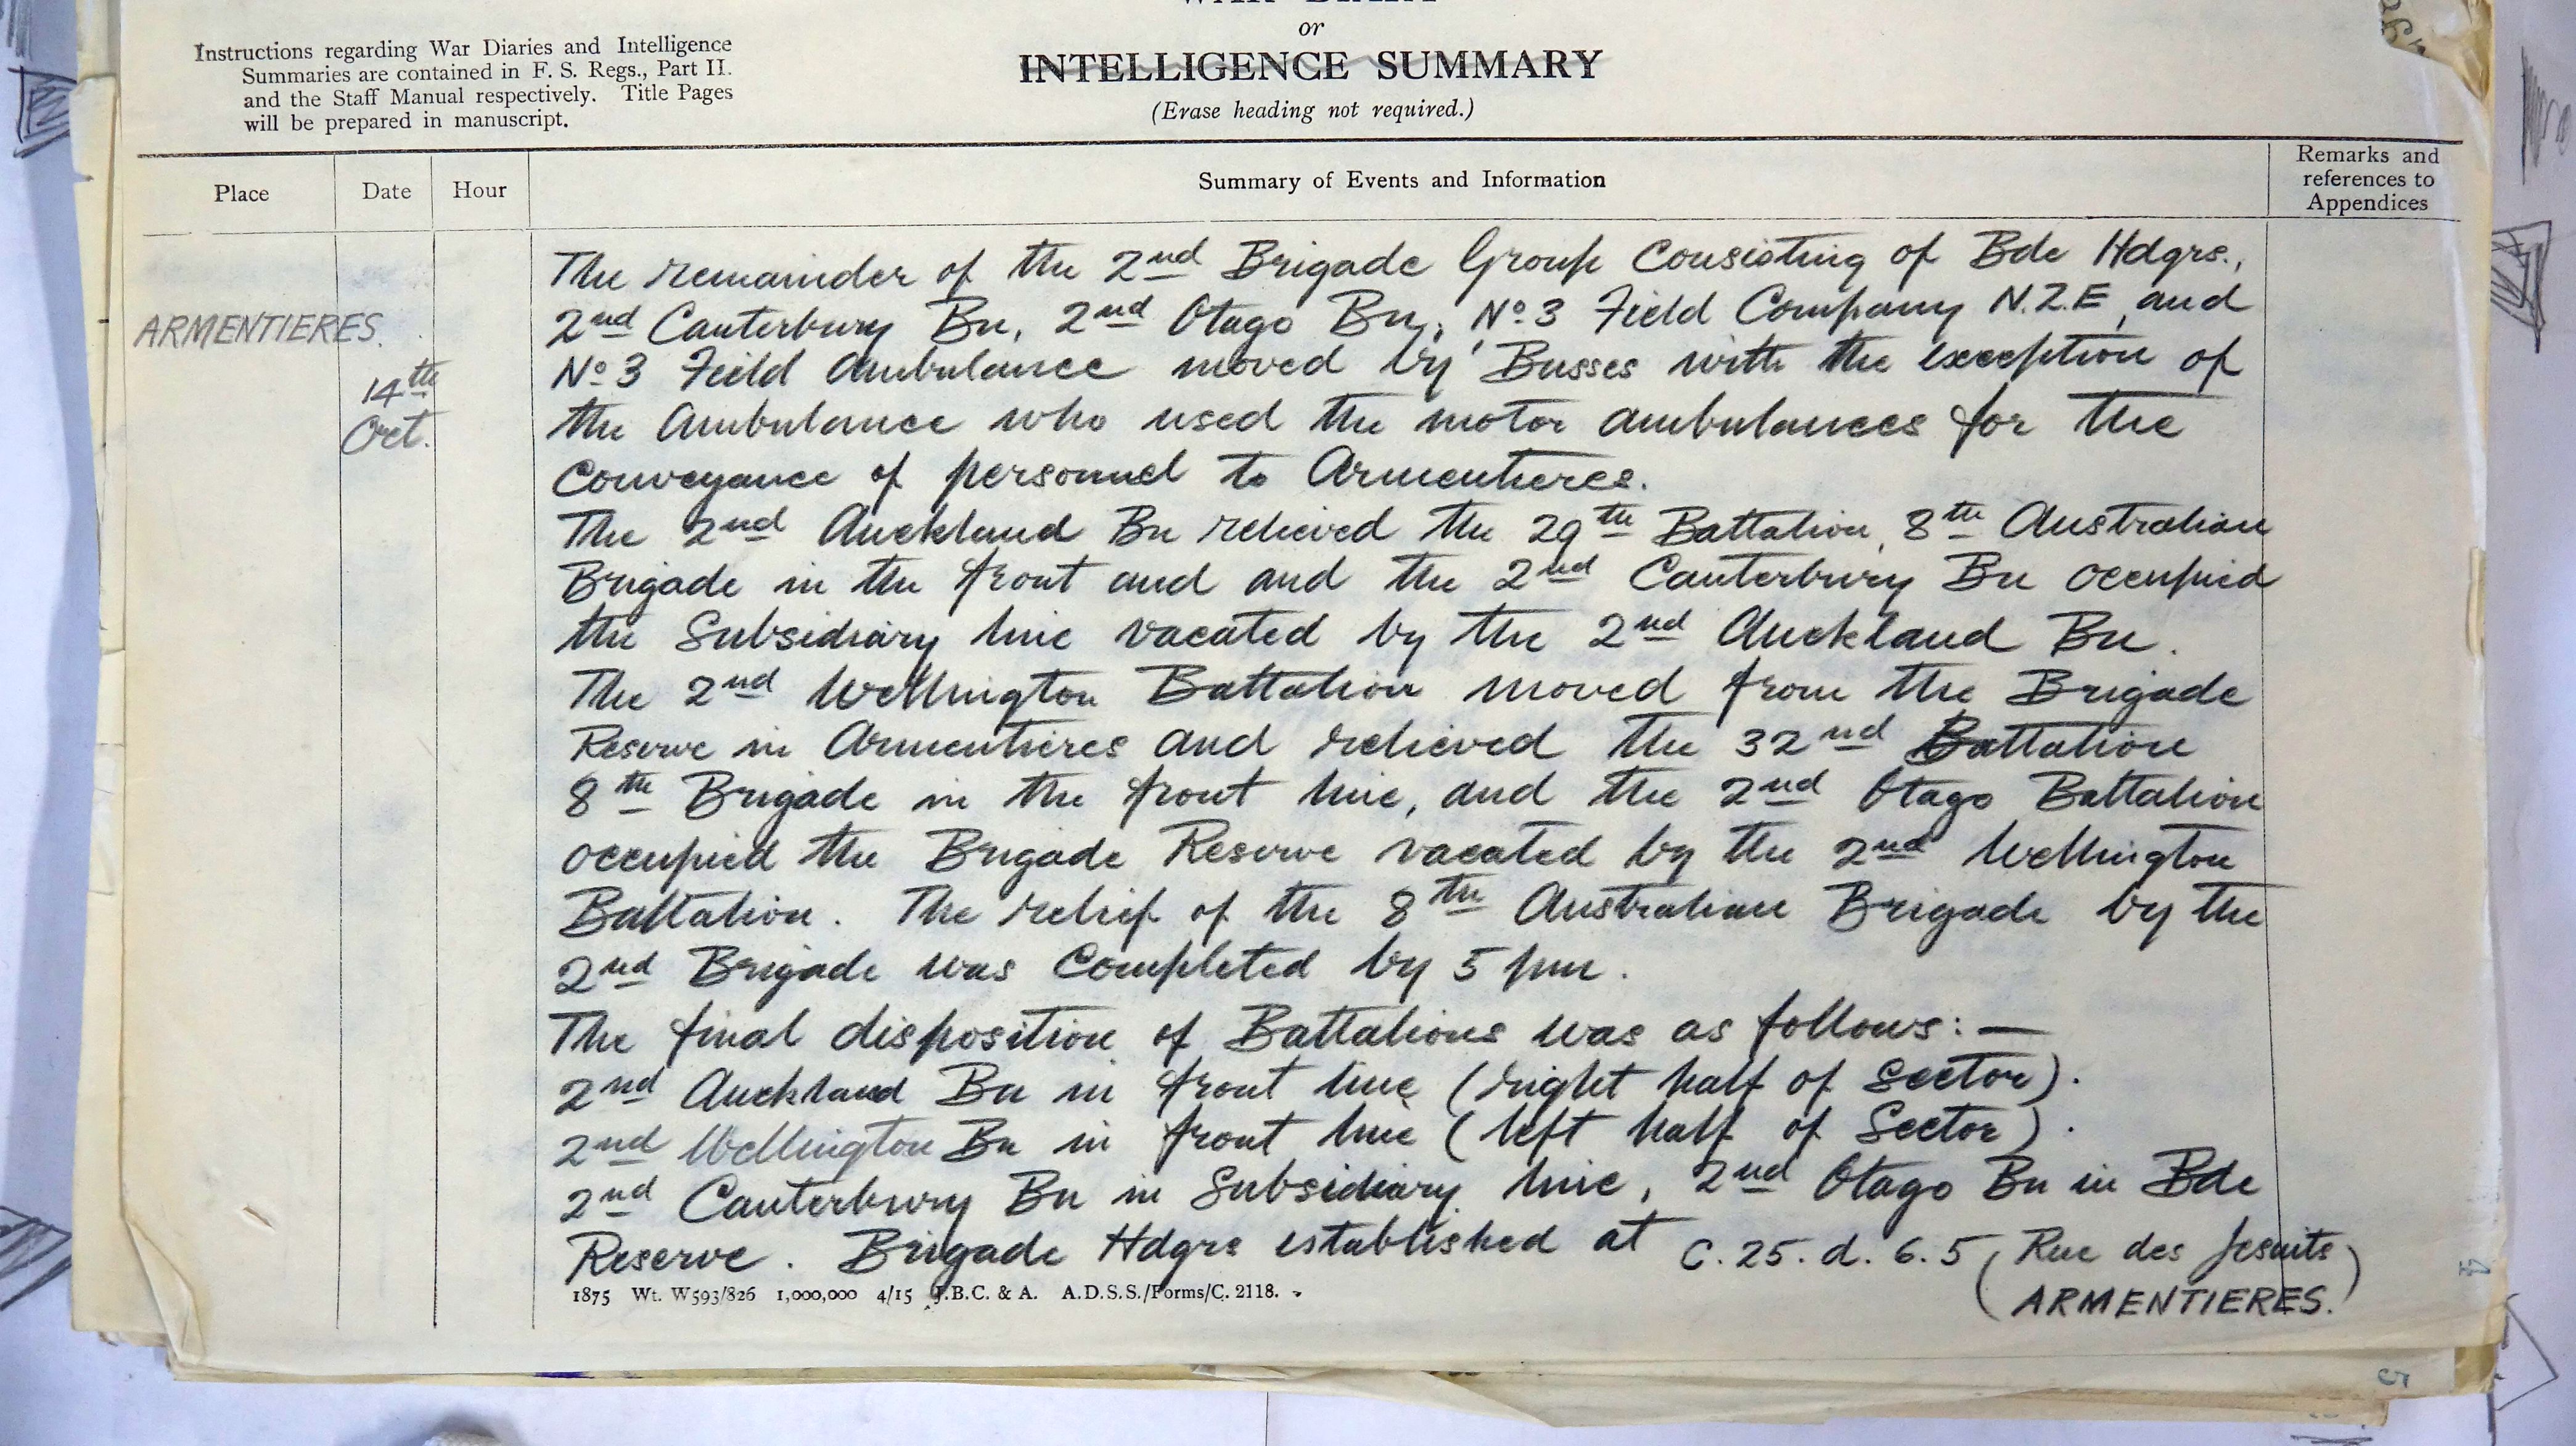 or
INTELLIGENCE SUMMARY
(Erase heading not required.)
Instructions regarding War Diaries and Intelligence
Summaries are contained in F. S. Regs., Part II.
and the Staff Manual respectively. Title Pages
will be prepared in manuscript.
Place Date Hour Summary of Events and Information Remarks and references to Appendices
ARMENTIERES.
14th
Oct.
The remainder of the 2nd Brigade Group Consisting of Bde Hdqrs.,
2nd Canterbury Bn, 2nd Otago Bn, No 3 Field Company N.Z.E, and
No 3 Field Ambulance moved by Busses with the exception of
the Ambulance who used the motor ambulances for the
Conveyance of personnel to Armentieres.
The 2nd Auckland Bn relieved the 29th Battalion, 8th Australian
Brigade in the front and and the 2nd Canterbury Bn occupied
the Subsidiary line vacated by the 2nd Auckland Bn.
The 2nd Wellington Battalion moved from the Brigade
Reserve in Armentieres and relieved the 32nd Battalion
8th Brigade in the front line, and the 2nd Otago Battalion
occupied the Brigade Reserve vacated by the 2nd Wellington
Battalion. The relief of the 8th Australian Brigade by the
2nd Brigade was Completed by 5 pm.
The final disposition of Battalions was as follows:—
2nd Auckland Bn in front line (right half of Sector).
2nd Wellington Bn in front line (left half of Sector).
2nd Canterbury Bn in Subsidiary line, 2nd Otago Bn in Bde
Reserve. Brigade Hdqrs established at C.25.d.6.5 (Rue des Jesuits
ARMENTIERES.)
1875 Wt. W593/826 1,000,000 4/15 J.B.C. & A. A.D.S.S./Forms/C. 2118.